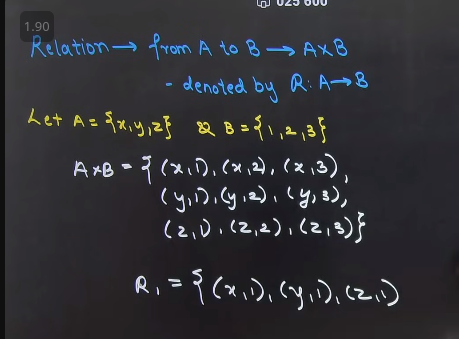 1.90
025 600
Relation → from A to B → A×B
- denoted by R: A→B
Let A = {x,y,z} & B = {1,2,3}
A×B = { (x,1), (x,2), (x,3),
(y,1), (y,2), (y,3),
(z,1), (z,2), (z,3)}
R₁ = { (x,1), (y,1), (z,1)